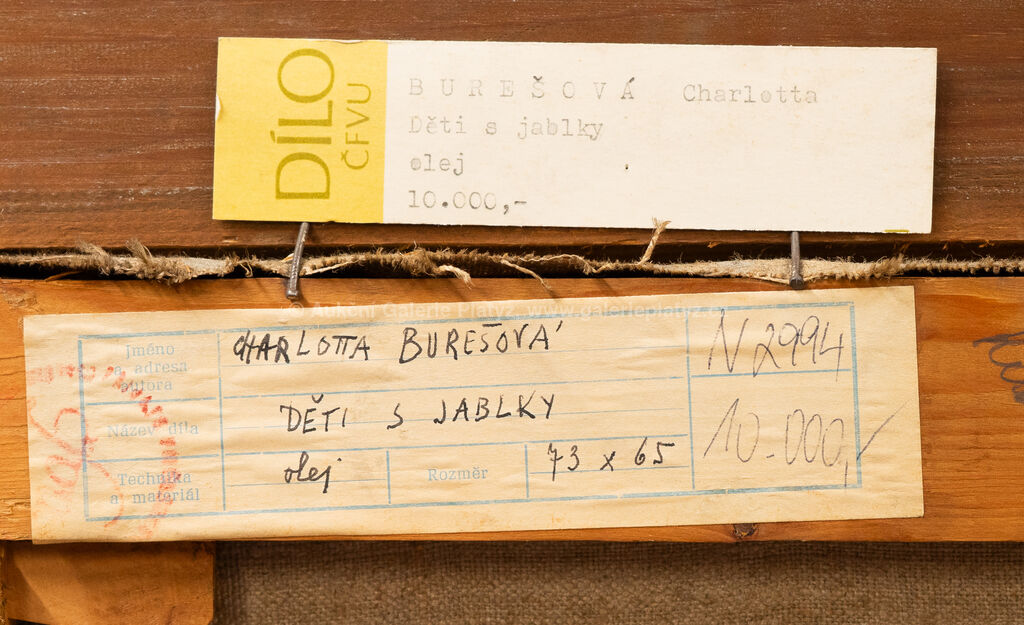 DÍLO
ČFVU
BUREŠOVÁ Charlotta
Děti s jablky
olej
10.000,-
© Aukční Galerie Platýz, www.galerieplatyz.c
Jméno
a adresa
autora
CHARLOTTA BUREŠOVÁ
N 2994
Název díla
DĚTI S JABLKY
10.000,-
Technika
a materiál
olej
Rozměr
73 x 65